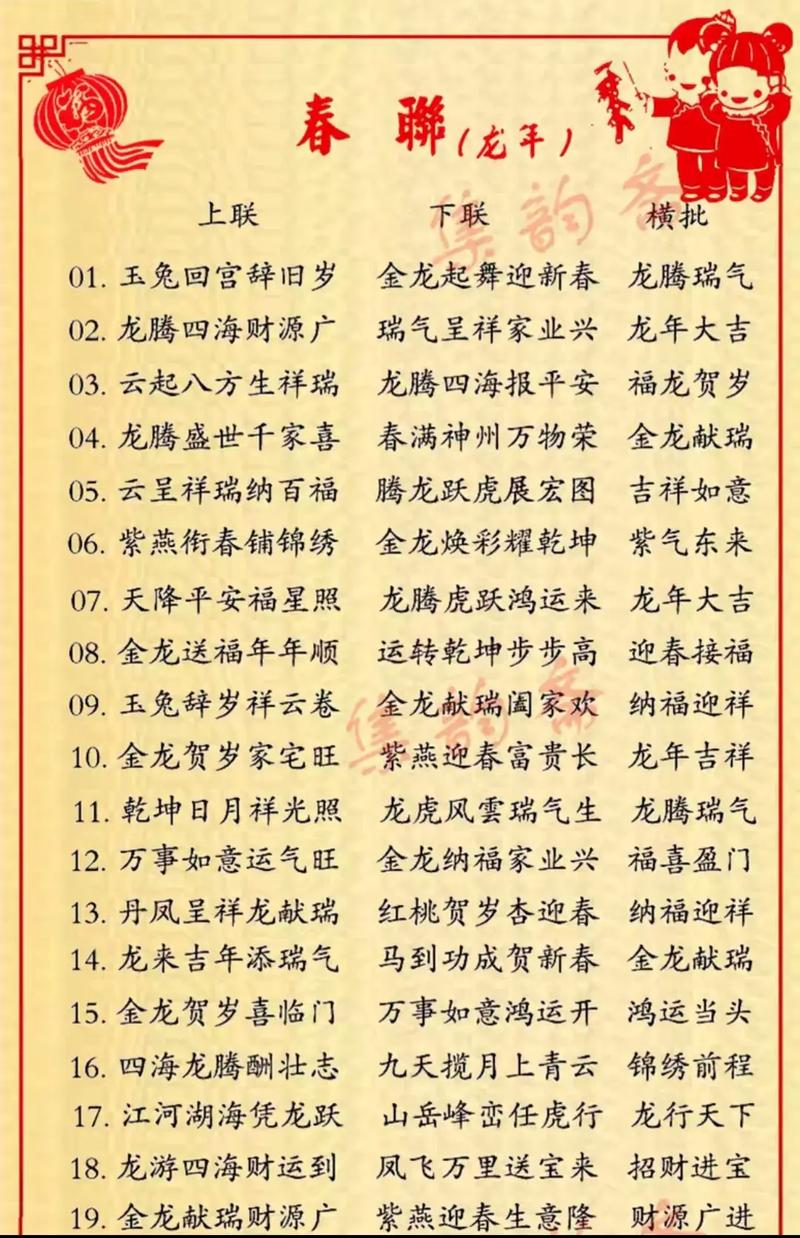 春聯(龙年)
上联 下联 横批
01. 玉兔回宫辞旧岁 金龙起舞迎新春 龙腾瑞气
02. 龙腾四海财源广 瑞气呈祥家业兴 龙年大吉
03. 云起八方生祥瑞 龙腾四海报平安 福龙贺岁
04. 龙腾盛世千家喜 春满神州万物荣 金龙献瑞
05. 云呈祥瑞纳百福 腾龙跃虎展宏图 吉祥如意
06. 紫燕衔春铺锦绣 金龙焕彩耀乾坤 紫气东来
07. 天降平安福星照 龙腾虎跃鸿运来 龙年大吉
08. 金龙送福年年顺 运转乾坤步步高 迎春接福
09. 玉兔辞岁祥云卷 金龙献瑞阖家欢 纳福迎祥
10. 金龙贺岁家宅旺 紫燕迎春富贵长 龙年吉祥
11. 乾坤日月祥光照 龙虎风雲瑞气生 龙腾瑞气
12. 万事如意运气旺 金龙纳福家业兴 福喜盈门
13. 丹凤呈祥龙献瑞 红桃贺岁杏迎春 纳福迎祥
14. 龙来吉年添瑞气 马到功成贺新春 金龙献瑞
15. 金龙贺岁喜临门 万事如意鸿运开 鸿运当头
16. 四海龙腾酬壮志 九天揽月上青云 锦绣前程
17. 江河湖海凭龙跃 山岳峰峦任虎行 龙行天下
18. 龙游四海财运到 凤飞万里送宝来 招财进宝
19. 金龙献瑞财源广 紫燕迎春生意隆 财源广进
集韵斋
集韵斋